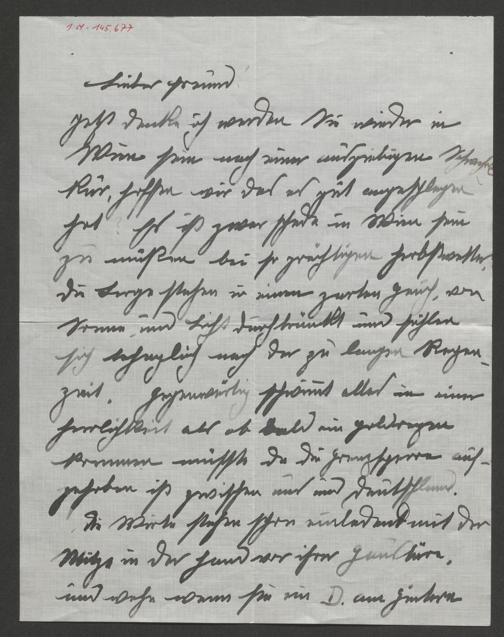 I.N. 145.677
Lieber Freund!
Jetzt denke ich werden Sie wieder in
Wien sein nach einer ausgiebigen
Kur, hoffen wir das es gut angeschlagen
hat! Es ist zwar schade in Wien sein
zu müßen bei so prächtigen Herbstwetter,
die Berge stehen in einen zarten von
Sonne und Licht durchtränkt und fühlen
sich behaglich nach der zu langen Regen-
zeit. Gegenwärtig schwimt alles in einer
Herrlichkeit als ob bald ein Goldregen
kommen müsste da die Grenzsperre auf-
gehoben ist zwischen uns und Deutschland.
Die Wirte stehen schon einladend mit der
Mütze in der Hand vor ihrer Haustüre,
und wehe wenn sie ein D. am Hintern